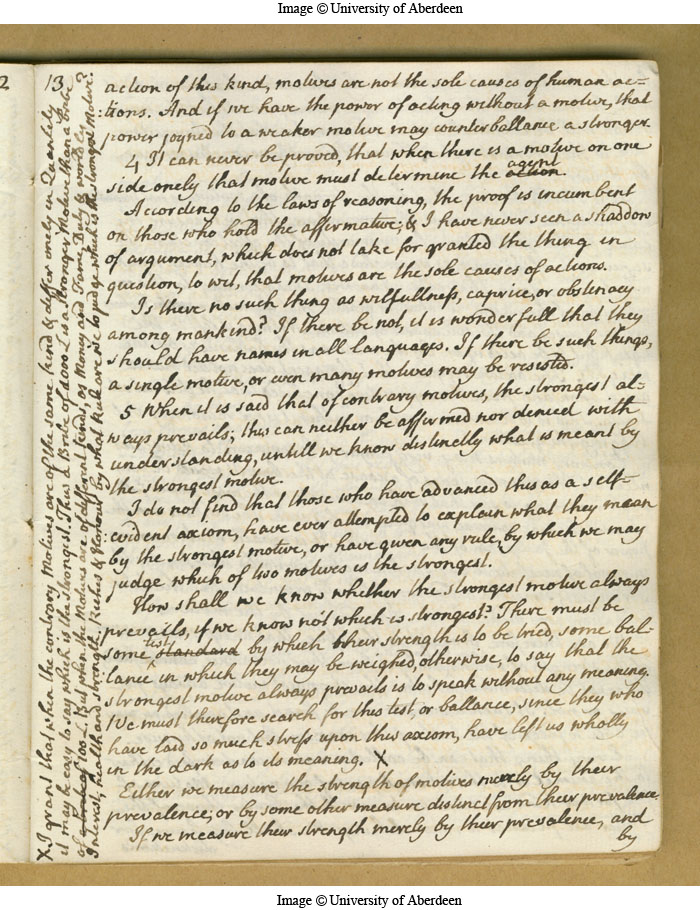 Image © University of Aberdeen
2
13
action of this kind, motives are not the sole causes of human ac=
:tions. And if we have the power of acting without a motive, that
power joyned to a weaker motive may counterballance a stronger
4 It can never be prooved, that when there is a motive on one
side onely that motive must determine the action agent.
Acording to the laws of reasoning, the proof is incumbent
on those who hold the affirmative; & I have never seen a shaddow
of argument, which does not take for granted the thing in
question, to wit, that motives are the sole causes of actions.
Is there no such thing as wilfullness, caprice, or obstinacy
among mankind? If there be not, it is wonderfull that they
should have names in all languages. If there be such things,
a single motive, or even many motives may be resisted.
5 When it is said that of contrary motives, the strongest al=
ways prevails; this can neither be affirmed nor denied with
understanding, untill we know distinctly what is meant by
the strongest motive.
I do not find that those who have advanced this as a self-
evident axiom, have ever attempted to explain what they mean
by the strongest motive, or have given any rule, by which we may
judge which of two motives is the strongest.
How shall we know whether the strongest motive always
prevails, if we know not which is strongest? There must be
some standard test by which their strength is to be tried, some bal-
:lance in which they may be weighed, otherwise, to say that the
strongest motive always prevails is to speak without any meaning.
We must therefore search for this test, or ballance, since they who
have laid so much stress upon this axiom, have left us wholly
in the dark as to its meaning. X
Either we measure the strength of motives merely by their
prevalence, or by some other measure distinct from their prevalence.
If we measure their strength merely by their prevalence, and
by
X I grant that when the contrary Motives are of the same kind & differ onely in Quantity
it may be easy to say which is the strongest. Thus a Bribe of 1000 L is a stronger Motive than a bribe
of 100 L. But when the Motives are of different kinds, as Money and Fame, Duty & worldly
Interest, health and strength, Riches & Honour, by what rule are we to judge which is the strongest Motive?
Image © University of Aberdeen